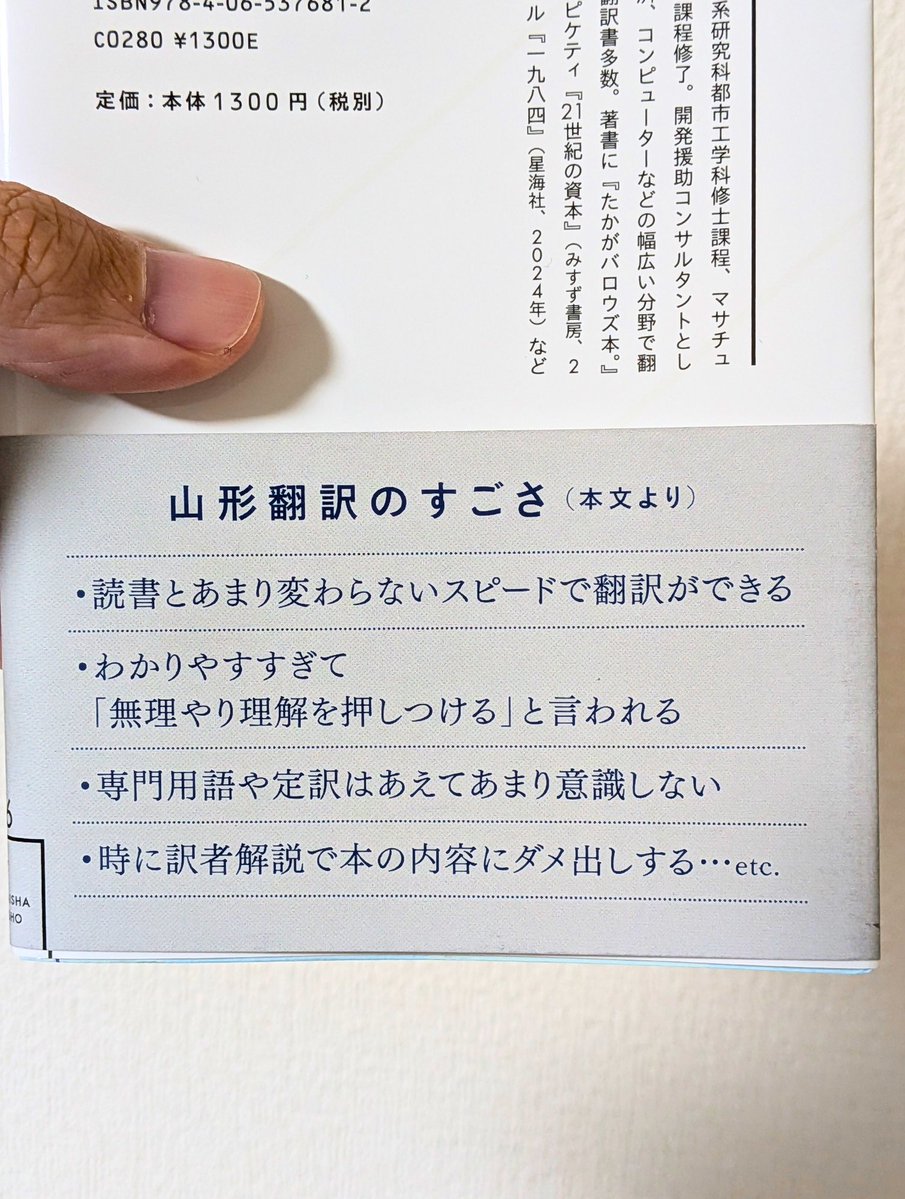 ISBN978-4-06-537681-2
C0280 ¥1300E
定価：本体1300円（税別）
系研究科都市工学科修士課程、マサチュ
課程修了。開発援助コンサルタントとし
、コンピューターなどの幅広い分野で翻
翻訳書多数。著書に『たかがバロウズ本。』
ピケティ『21世紀の資本』（みすず書房、2
ル『一九八四』（星海社、2024年）など
山形翻訳のすごさ（本文より）
・読書とあまり変わらないスピードで翻訳ができる
・わかりやすすぎて
「無理やり理解を押しつける」と言われる
・専門用語や定訳はあえてあまり意識しない
・時に訳者解説で本の内容にダメ出しする…etc.